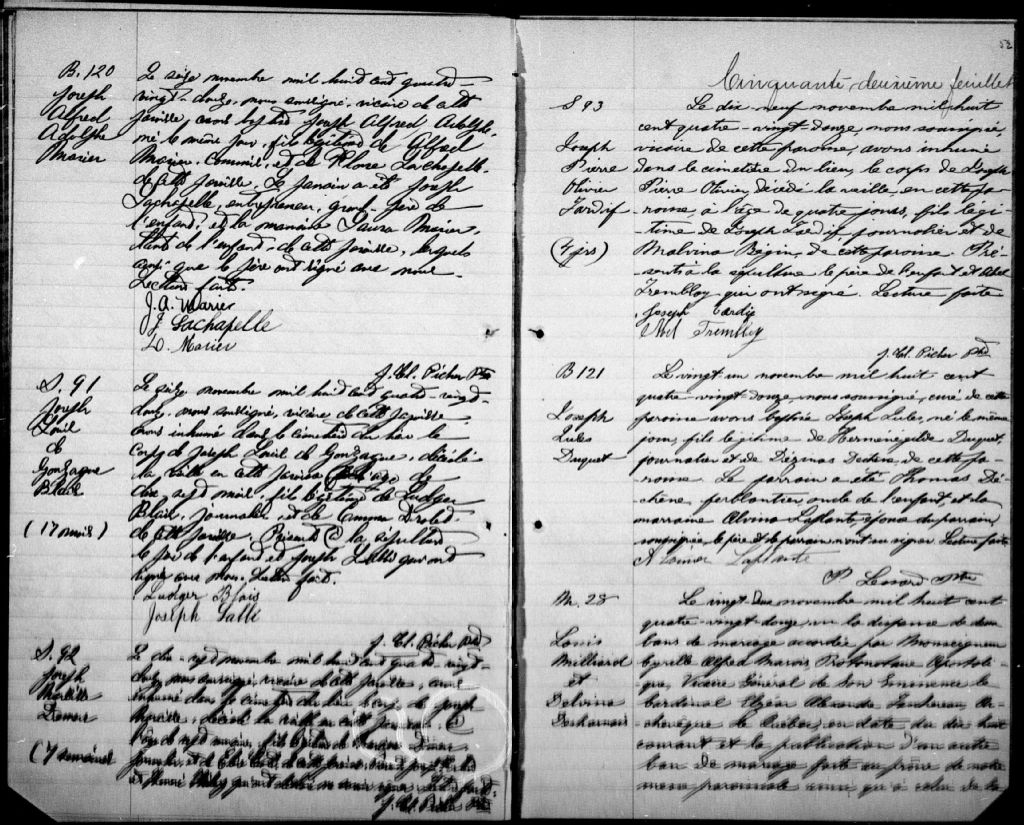 B. 120
Joseph
Alfred
Adolphe
Marier
Le seize novembre mil huit cent quatre-
vingt-douze, nous soussigné, vicaire de cette
paroisse, avons baptisé Joseph Alfred Adolphe,
né le même jour, fils légitime de Alfred
Marier, Commis, et de Flore Lachapelle
de cette paroisse. Le parrain a été Joseph
Lachapelle, entrepreneur, grand-père de
l'enfant, et la marraine Laura Marier,
tante de l'enfant, de cette paroisse, lesquels
ainsi que le père ont signé avec nous.
Lecture faite.
J. A. Marier
J. Lachapelle
L. Marier
J. Cl. Picher Ptre
S. 91
Joseph
Louis
de
Gonzague
Blais
(17 mois)
Le seize novembre mil huit cent quatre-vingt-
douze, nous soussigné, vicaire de cette paroisse
avons inhumé dans le cimetière du lieu le
corps de Joseph Louis de Gonzague, décédé
la veille en cette paroisse à l'âge de
dix-sept mois, fils légitime de Ludger
Blais, journalier et de Drolet
de cette paroisse. Présents à la sépulture
le père de l'enfant et Joseph Lallé qui ont
signé avec nous. Lecture faite.
Ludger Blais
Joseph Lallé
J. Cl. Picher Ptre
S. 92
Joseph
Demers
(7 semaines)
Le dix-sept novembre mil huit cent quatre-vingt-
douze, nous soussigné, vicaire de cette paroisse, avons
inhumé dans le cimetière du lieu le corps de Joseph
décédé la veille en cette paroisse à
l'âge de sept semaines, fils légitime de Demers
journalier, et de
J. Cl. Picher Ptre
52
Cinquante-deuxième feuillet
S 93
Joseph
Pierre
Olivier
Tardif
(4 jrs)
Le dix-neuf novembre mil huit
cent quatre-vingt-douze, nous soussigné,
vicaire de cette paroisse, avons inhumé
dans le cimetière du lieu, le corps de Joseph
Pierre Olivier, décédé la veille, en cette pa-
roisse, à l'âge de quatre jours, fils légi-
time de Joseph Tardif journalier et de
Malvina Bégin, de cette paroisse. Pré-
sents à la sépulture le père de l'enfant et Abel
Tremblay qui ont signé. Lecture faite
Joseph Tardif
Abel Tremblay
J. Cl. Picher Ptre
B 121
Joseph
Jules
Duquet
Le vingt-un novembre mil huit cent
quatre-vingt-douze, nous soussigné, curé de cette
paroisse avons baptisé Joseph Jules, né le même
jour, fils légitime de Herménégilde Duquet,
journalier et de Déchêne, de cette pa-
roisse. Le parrain a été Thomas Dé-
chêne, ferblantier oncle de l'enfant, et la
marraine Alvina Laplante, épouse du parrain,
soussignée, le père et le parrain n'ont su signer. Lecture faite
Alvina Laplante
P. Lessard Ptre
M. 28
Louis
Milliard
et
Delvina
Desharnais
Le vingt-deux novembre mil huit cent
quatre-vingt-douze, vu la dispense de deux
bans de mariage accordée par Monseigneur
Cyrille Alfred Marois Protonotaire Apostoli-
que, Vicaire Général de Son Eminence le
Cardinal Elzéar Alexandre Taschereau, Ar-
chevêque de Québec, en date du dix-huit
courant et la publication d'un autre
ban de mariage faite au prône de notre
messe paroissiale ainsi qu'à celui de la